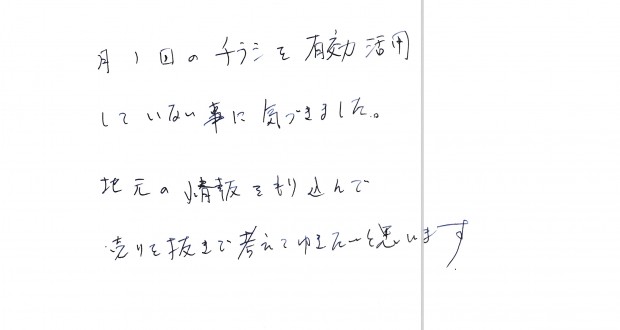 月1回のチラシを有効活用
していない事に気づきました。
地元の情報をもり込んで
売りを抜まで考えてゆきたいと思います